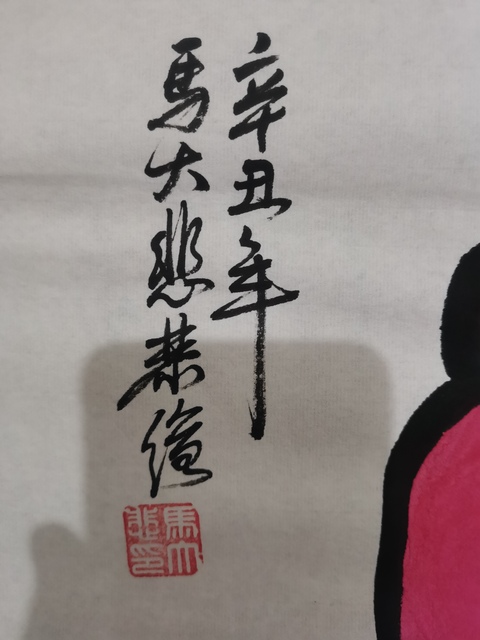 辛丑年
馬大悲恭繪
馬大悲印